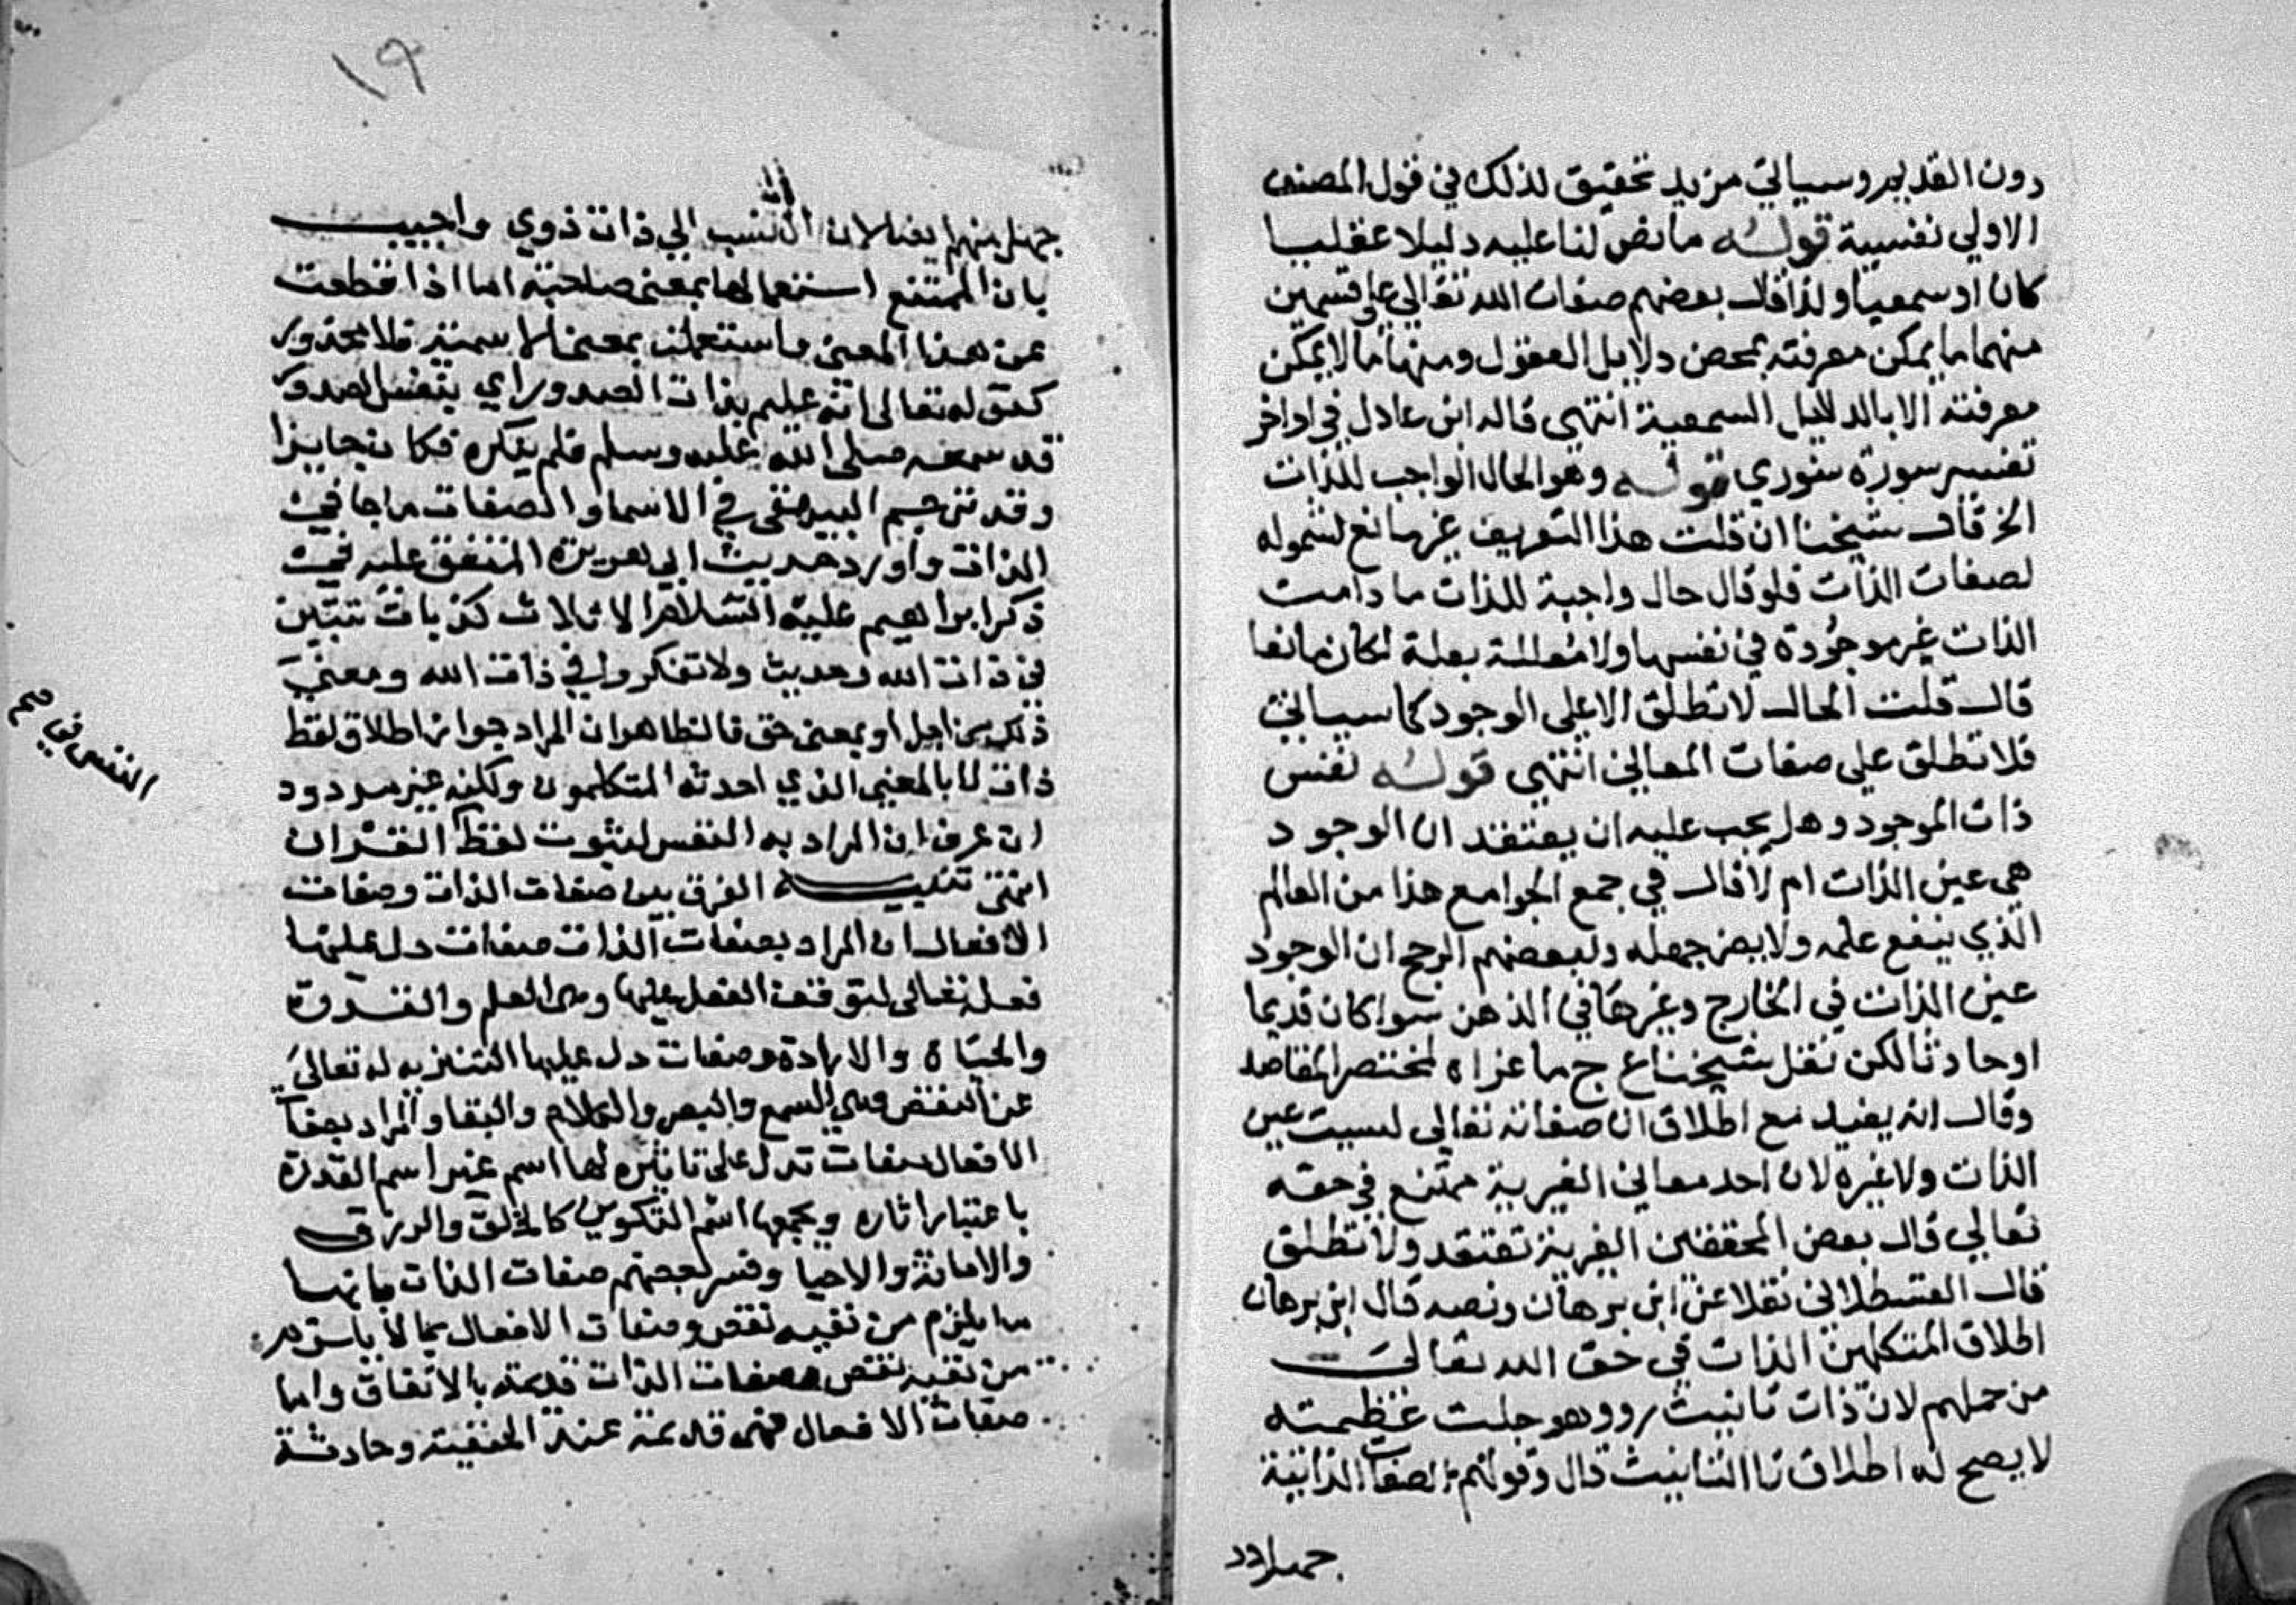 دون القديم وسياتي مزيد تحقيق لذلك في قول المصنف
الاولي نفسية قوله ما نص لنا عليه دليلا عقليا
كان او سمعيا ولذا قال بعضهم صفات الله تعالي علي قسمين
منهما ما يمكن معرفته بمحض دلايل العقول ومنها ما لا يمكن
معرفته الا بالدلايل السمعية انتهي قاله ابن عادل في اواخر
تفسير سورة شوري قوله وهو الحال الواجب للذات
الخ قال شيخنا ان قلت هذا التعريف غير مانع لشموله
لصفات الذات فلو قال حال واجبة للذات ما دامت
الذات غير موجودة في نفسها ولا معللة بعلة لكان مانعا
قال قلت الحال لا تطلق الا علي الوجود كما سياتي
فلا تطلق علي صفات المعاني انتهي قوله نفس
ذات الموجود وهل يجب عليه ان يعتقد ان الوجود
هي عين الذات ام لا قال في جمع الجوامع هذا من العالم
الذي ينفع علمه ولا يضر جهله ولبعضهم الرجح ان الوجود
عين الذات في الخارج وغيرها في الذهن سوا كان قديما
او حادثا لكن نقل شيخنا ع ج ما عزاه لمختصر المقاصد
وقال انه يفيد مع اطلاق ان صفاته تعالي ليست عين
الذات ولا غيره لان احد معاني الغيرية ممتنع في حقه
تعالي قال بعض المحققين الغيرية تعتقد ولا تطلق
قال القسطلاني نقلا عن ابن برهان ونصه قال ابن برهان
اطلاق المتكلمين الذات في حق الله تعالي
من جهلهم لان ذات تانيث ذو وهو جلت عظمته
لا يصح له اطلاق تا التانيث قال وقولهم الصفات الذاتية
جهل
١٩
جهل منهم ايضا لان النسب الي ذات ذوي واجيب
بان الممتنع استعمالها بمعني صاحبة اما اذا قطعت
عن هذا المعني واستعملت بمعني الاسمية فلا محذور
كقوله تعالي انه عليم بذات الصدور اي بنفس الصدور
قد سمعه صلي الله عليه وسلم فلم ينكره فكان جايزا
وقد ترجم البيهقي في الاسما والصفات ما جا في
الذات واورد حديث ابي هريرة المتفق عليه في
ذكر ابراهيم عليه السلام الا ثلاث كذبات ثنتين
في ذات الله وحديث ولا تفكروا في ذات الله ومعني
ذلك من اجل او بمعني حق فالظاهر ان المراد جواز اطلاق لفظ
ذات لا بالمعني الذي احدثه المتكلمون ولكنه غير مردود
ان عرف ان المراد به النفس لثبوت لفظ القران
انتهي تنبيه الفرق بين صفات الذات وصفات
الافعال ان المراد بصفات الذات صفات دل عليها
فعله تعالي لتوقف الفعل عليها وهي العلم والقدرة
والحياة والارادة وصفات دل عليها التنزيه له تعالي
عن النقص وهي السمع والبصر والكلام والبقا والمراد بصفات
الافعال صفات تدل علي تاثيره لها اسم غير اسم القدرة
باعتبار اثاره ويجمعها اسم التكوين كالخلق والرزق
والاماتة والاحيا وفسر بعضهم صفات الذات بانها
ما يلزم من نفيه نقص وصفات الافعال بما لا يلزم
من نفيه نقص وصفات الذات قديمة بالاتفاق واما
صفات الافعال فهي قديمة عند الحنفية وحادثة
النفس في صح